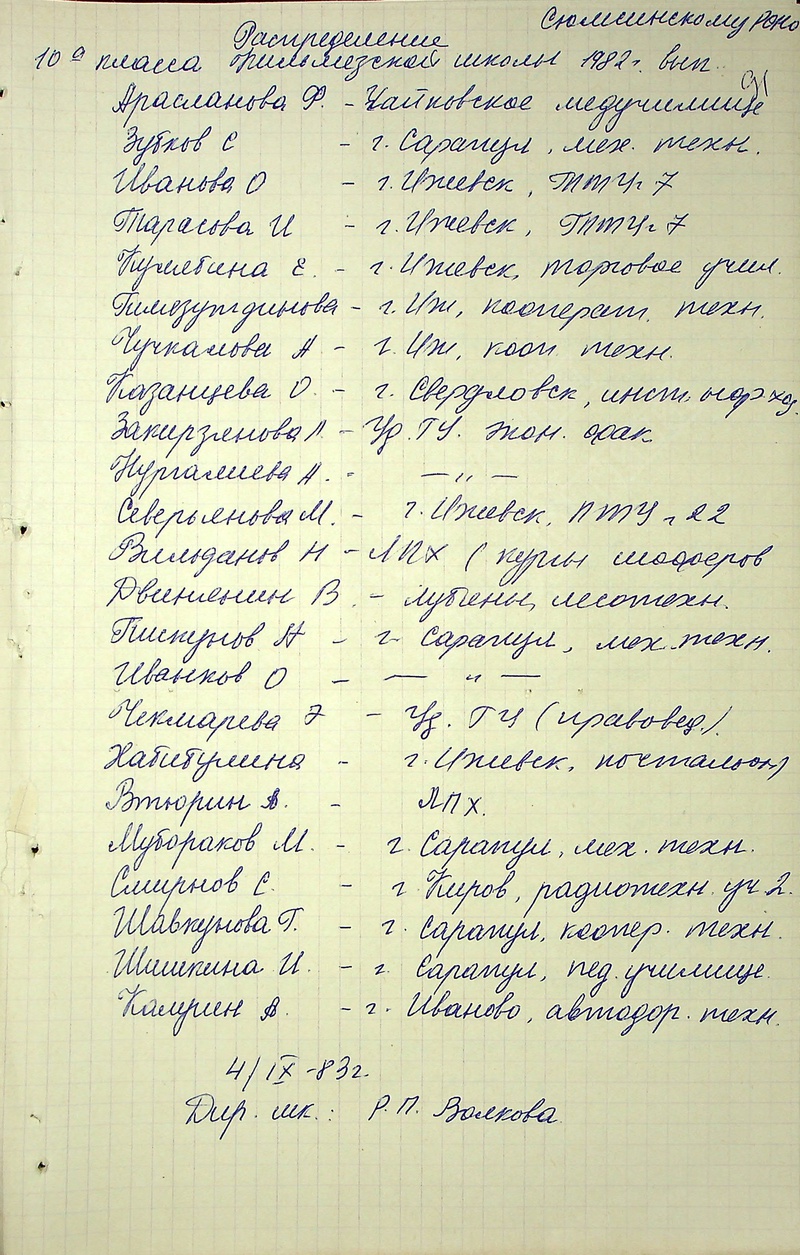 Сюмсинскому РОНО
Распределение
10 а класса Кильмезской школы 1982 г. вып.
91
Арасланова Ф. - Чайковское медучилище
Зубков С - г. Сарапул, мех. техн.
Иванова О - г. Ижевск, ТПТУ-7
Тарасова И - г. Ижевск, ТПТУ-7
Кулябина Е. - г. Ижевск, торговое учил.
Гимазутдинова - г. Иж, кооперат. техн.
Чучкалова А - г. Иж, кооп. техн.
Казанцева О. - г. Свердловск, инст. нар. хоз.
Закирзянова Л - Уд. ГУ. экон. фак
Нургалиева А. - — " —
Северьянова М. - г. Ижевск, ПТУ-22
Вильданов Н - ЛПХ (курсы шоферов
Двинянин В. - лубяны, лесотехн.
Пискунов А - г. Сарапул, мех. техн.
Иванков О - — " —
Чекмарева Э - Уд. ГУ (правовед.)
Хабибулина - г. Ижевск, почтальон)
Втюрин А. - ЛПХ.
Мубораков М. - г. Сарапул, мех. техн.
Смирнов С. - г Киров, радиотехн. уч 2.
Шавкунова Г. - г. Сарапул, коопер. техн.
Шишкина И. - г. Сарапул, пед. училище
Камрин А. - г. Иваново, автодор. техн.
4/IX-83г.
Дир. шк.: Р.П. Волкова